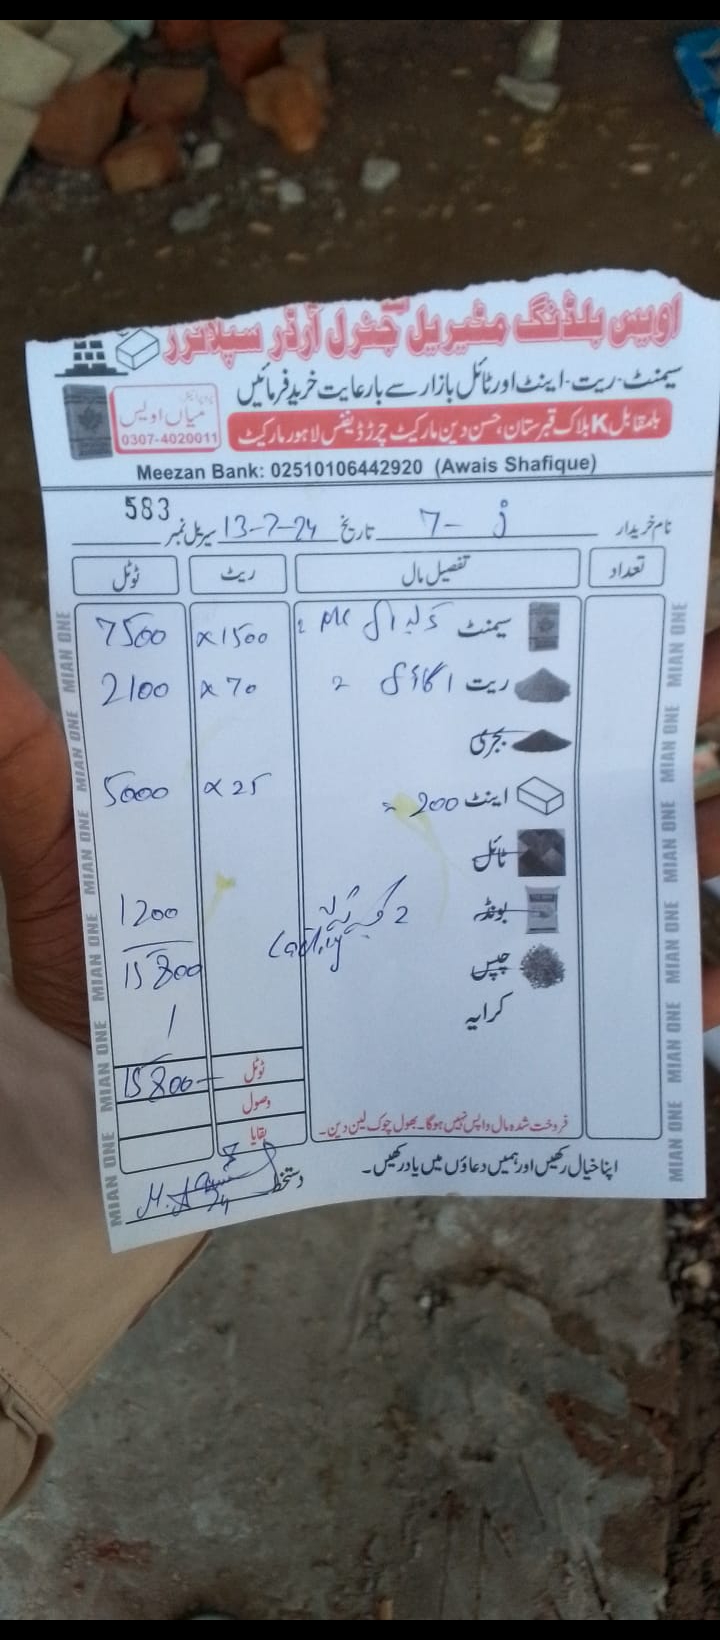 اویس بلڈنگ مٹیریل جنرل آرڈر سپلائرز
سیمنٹ-ریت-اینٹ اور ٹائل بازار سے بارعایت خرید فرمائیں
میاں اویس
0307-4020011
بالمقابل K بلاک قبرستان، حسن دین مارکیٹ چرڑ ڈیفنس لاہور مارکیٹ
Meezan Bank: 02510106442920 (Awais Shafique)
نام خریدار 7- تاریخ 13-7-24 سیریل نمبر 583
تعداد تفصیل مال ریٹ ٹوٹل
سیمنٹ x1500 7500
ریت x 70 2100
بجری
اینٹ 200 = x 25 5000
ٹائل
بونڈ 2 1200
چپس 15800
کرایہ /
ٹوٹل 15800
وصول
بقایا
فروخت شدہ مال واپس نہیں ہوگا۔ بھول چوک لین دین۔
اپنا خیال رکھیں اور ہمیں دعاؤں میں یاد رکھیں۔
دستخط
MIAN ONE MIAN ONE MIAN ONE MIAN ONE MIAN ONE MIAN ONE
MIAN ONE MIAN ONE MIAN ONE MIAN ONE MIAN ONE MIAN ONE